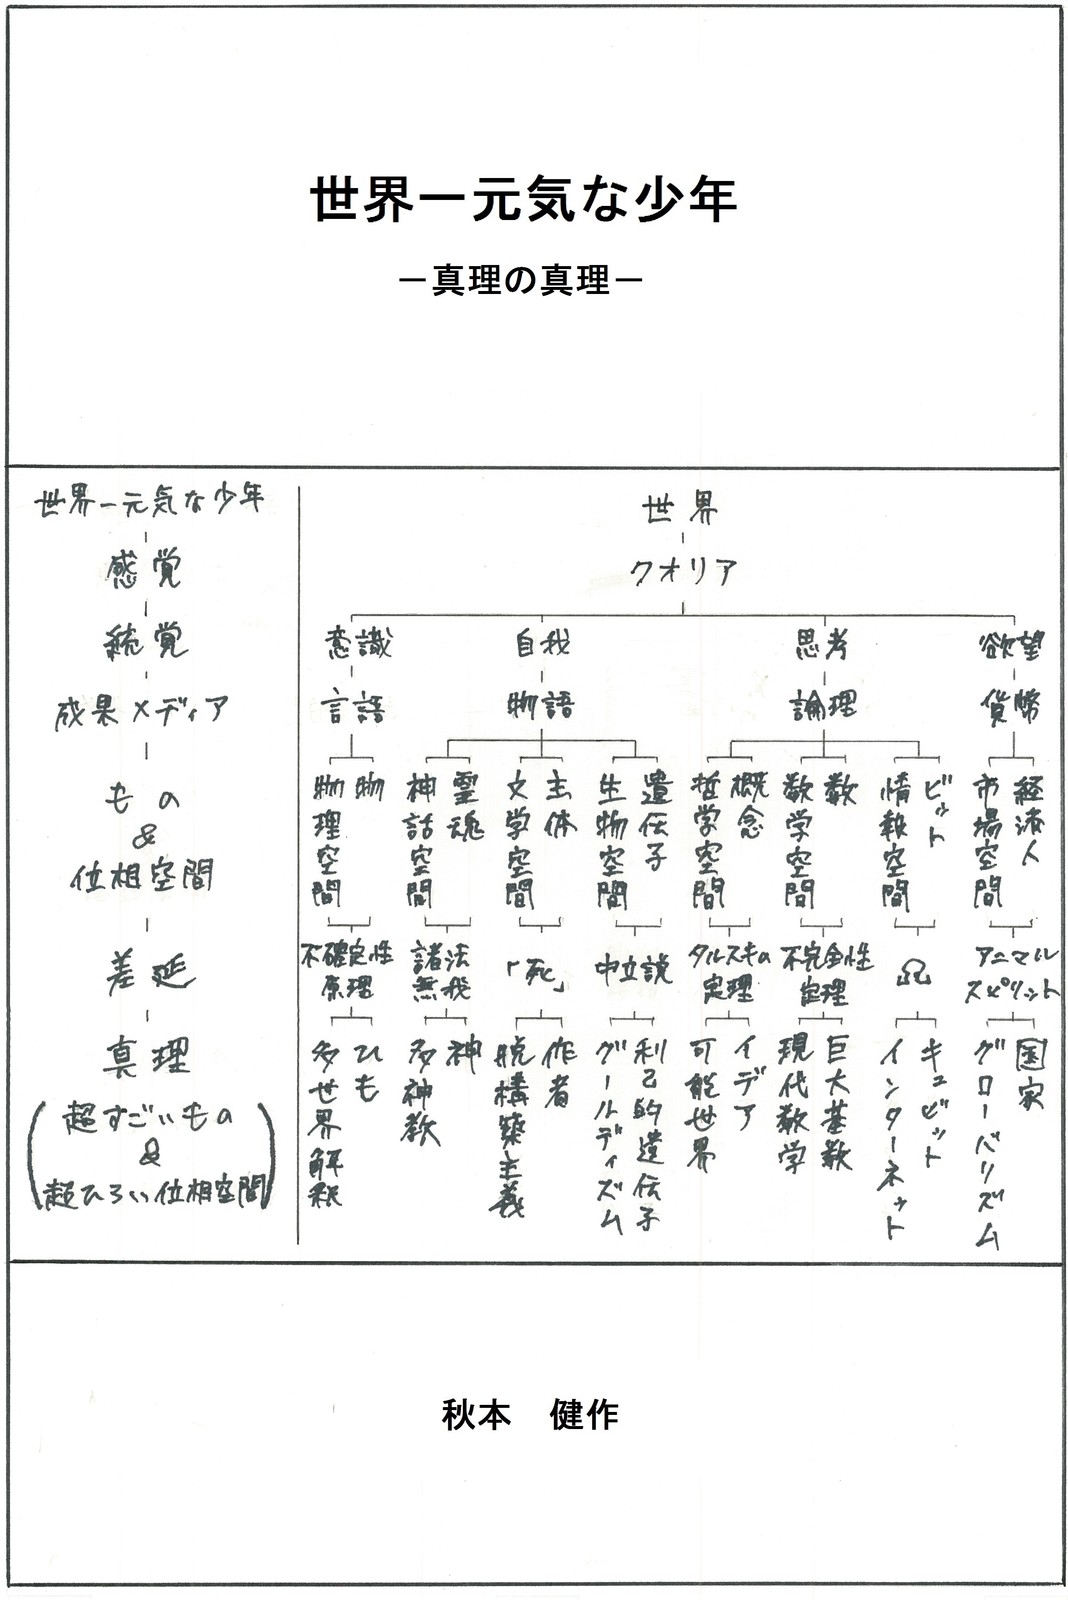 世界一元気な少年
－真理の真理－
世界一元気な少年
感覚
統覚
成果メディア
もの
&
位相空間
差延
真理
(超すごいもの
&
超ひろい位相空間)
世界
クオリア
意識 自我 思考 欲望
言語 物語 論理 貨幣
物
物理空間
霊魂
神話空間
主体
文学空間
遺伝子
生物空間
概念
哲学空間
数
数学空間
ビット
情報空間
経済人
市場空間
不確定性
原理
諸法
無我
「死」
中立説
タルスキの
定理
不完全性
定理
Ω
アニマル
スピリット
ひも
多世界解釈
神
多神教
作者
脱構築主義
利己的遺伝子
グールディズム
イデア
可能世界
巨大基数
現代数学
キュビット
インターネット
国家
グローバリズム
秋本 健作